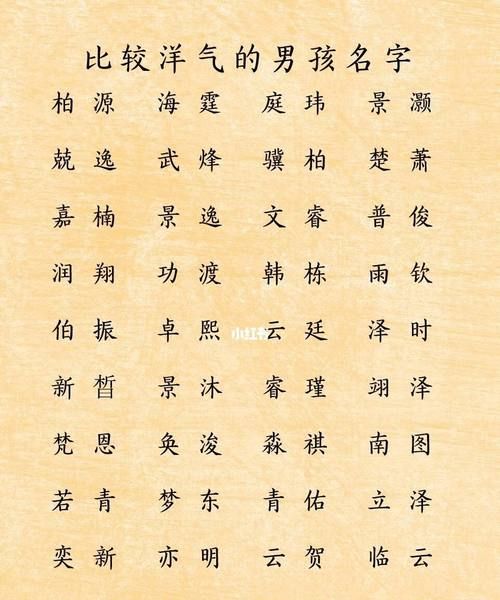 比较洋气的男孩名字
柏源 海霆 庭玮 景灏
兢逸 武烽 骥柏 楚萧
嘉楠 景逸 文睿 普俊
润翔 功渡 韩栋 雨钦
伯振 卓熙 云廷 泽时
小红书
新皙 景沐 睿瑾 翊泽
梵恩 奂浚 淼祺 南图
若青 梦东 青佑 立泽
奕新 亦明 云贺 临云